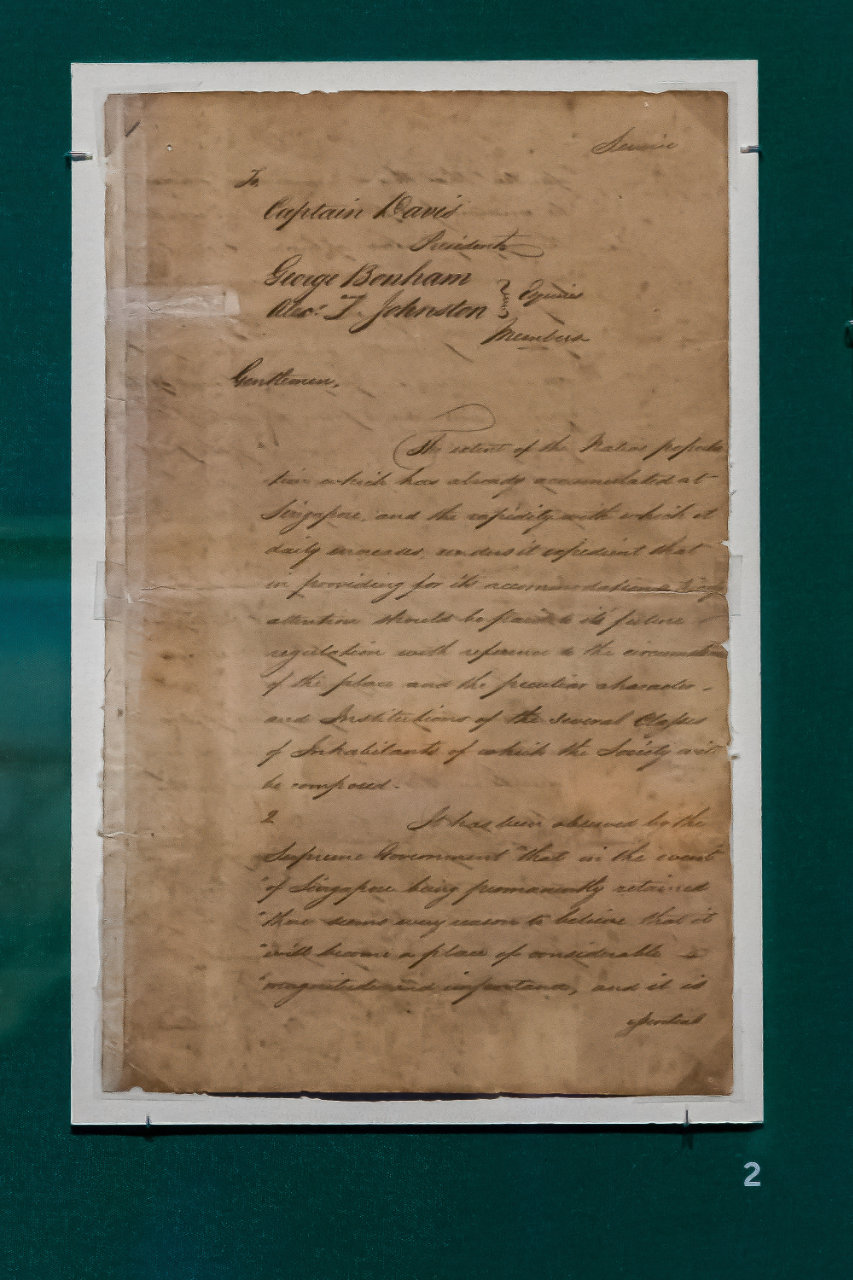 Service
To
Captain Davis
President
George Bonham
Alexr. L. Johnston } Esquires
Members
Gentlemen,
The extent of the Native popula
tion which has already accumulated at
Singapore, and the rapidity with which it
daily increases, renders it expedient that
in providing for its accommodation a
attention should be paid to its future
regulation with reference to the circumstances
of the place and the peculiar character -
and Institutions of the several Classes
of Inhabitants of which the Society will
be composed -
2 It has been observed by the
Supreme Government "that in the event
"of Singapore being permanently retained
"there seems every reason to believe that it
"will become a place of considerable
"magnitude and importance, and it is
essential
2